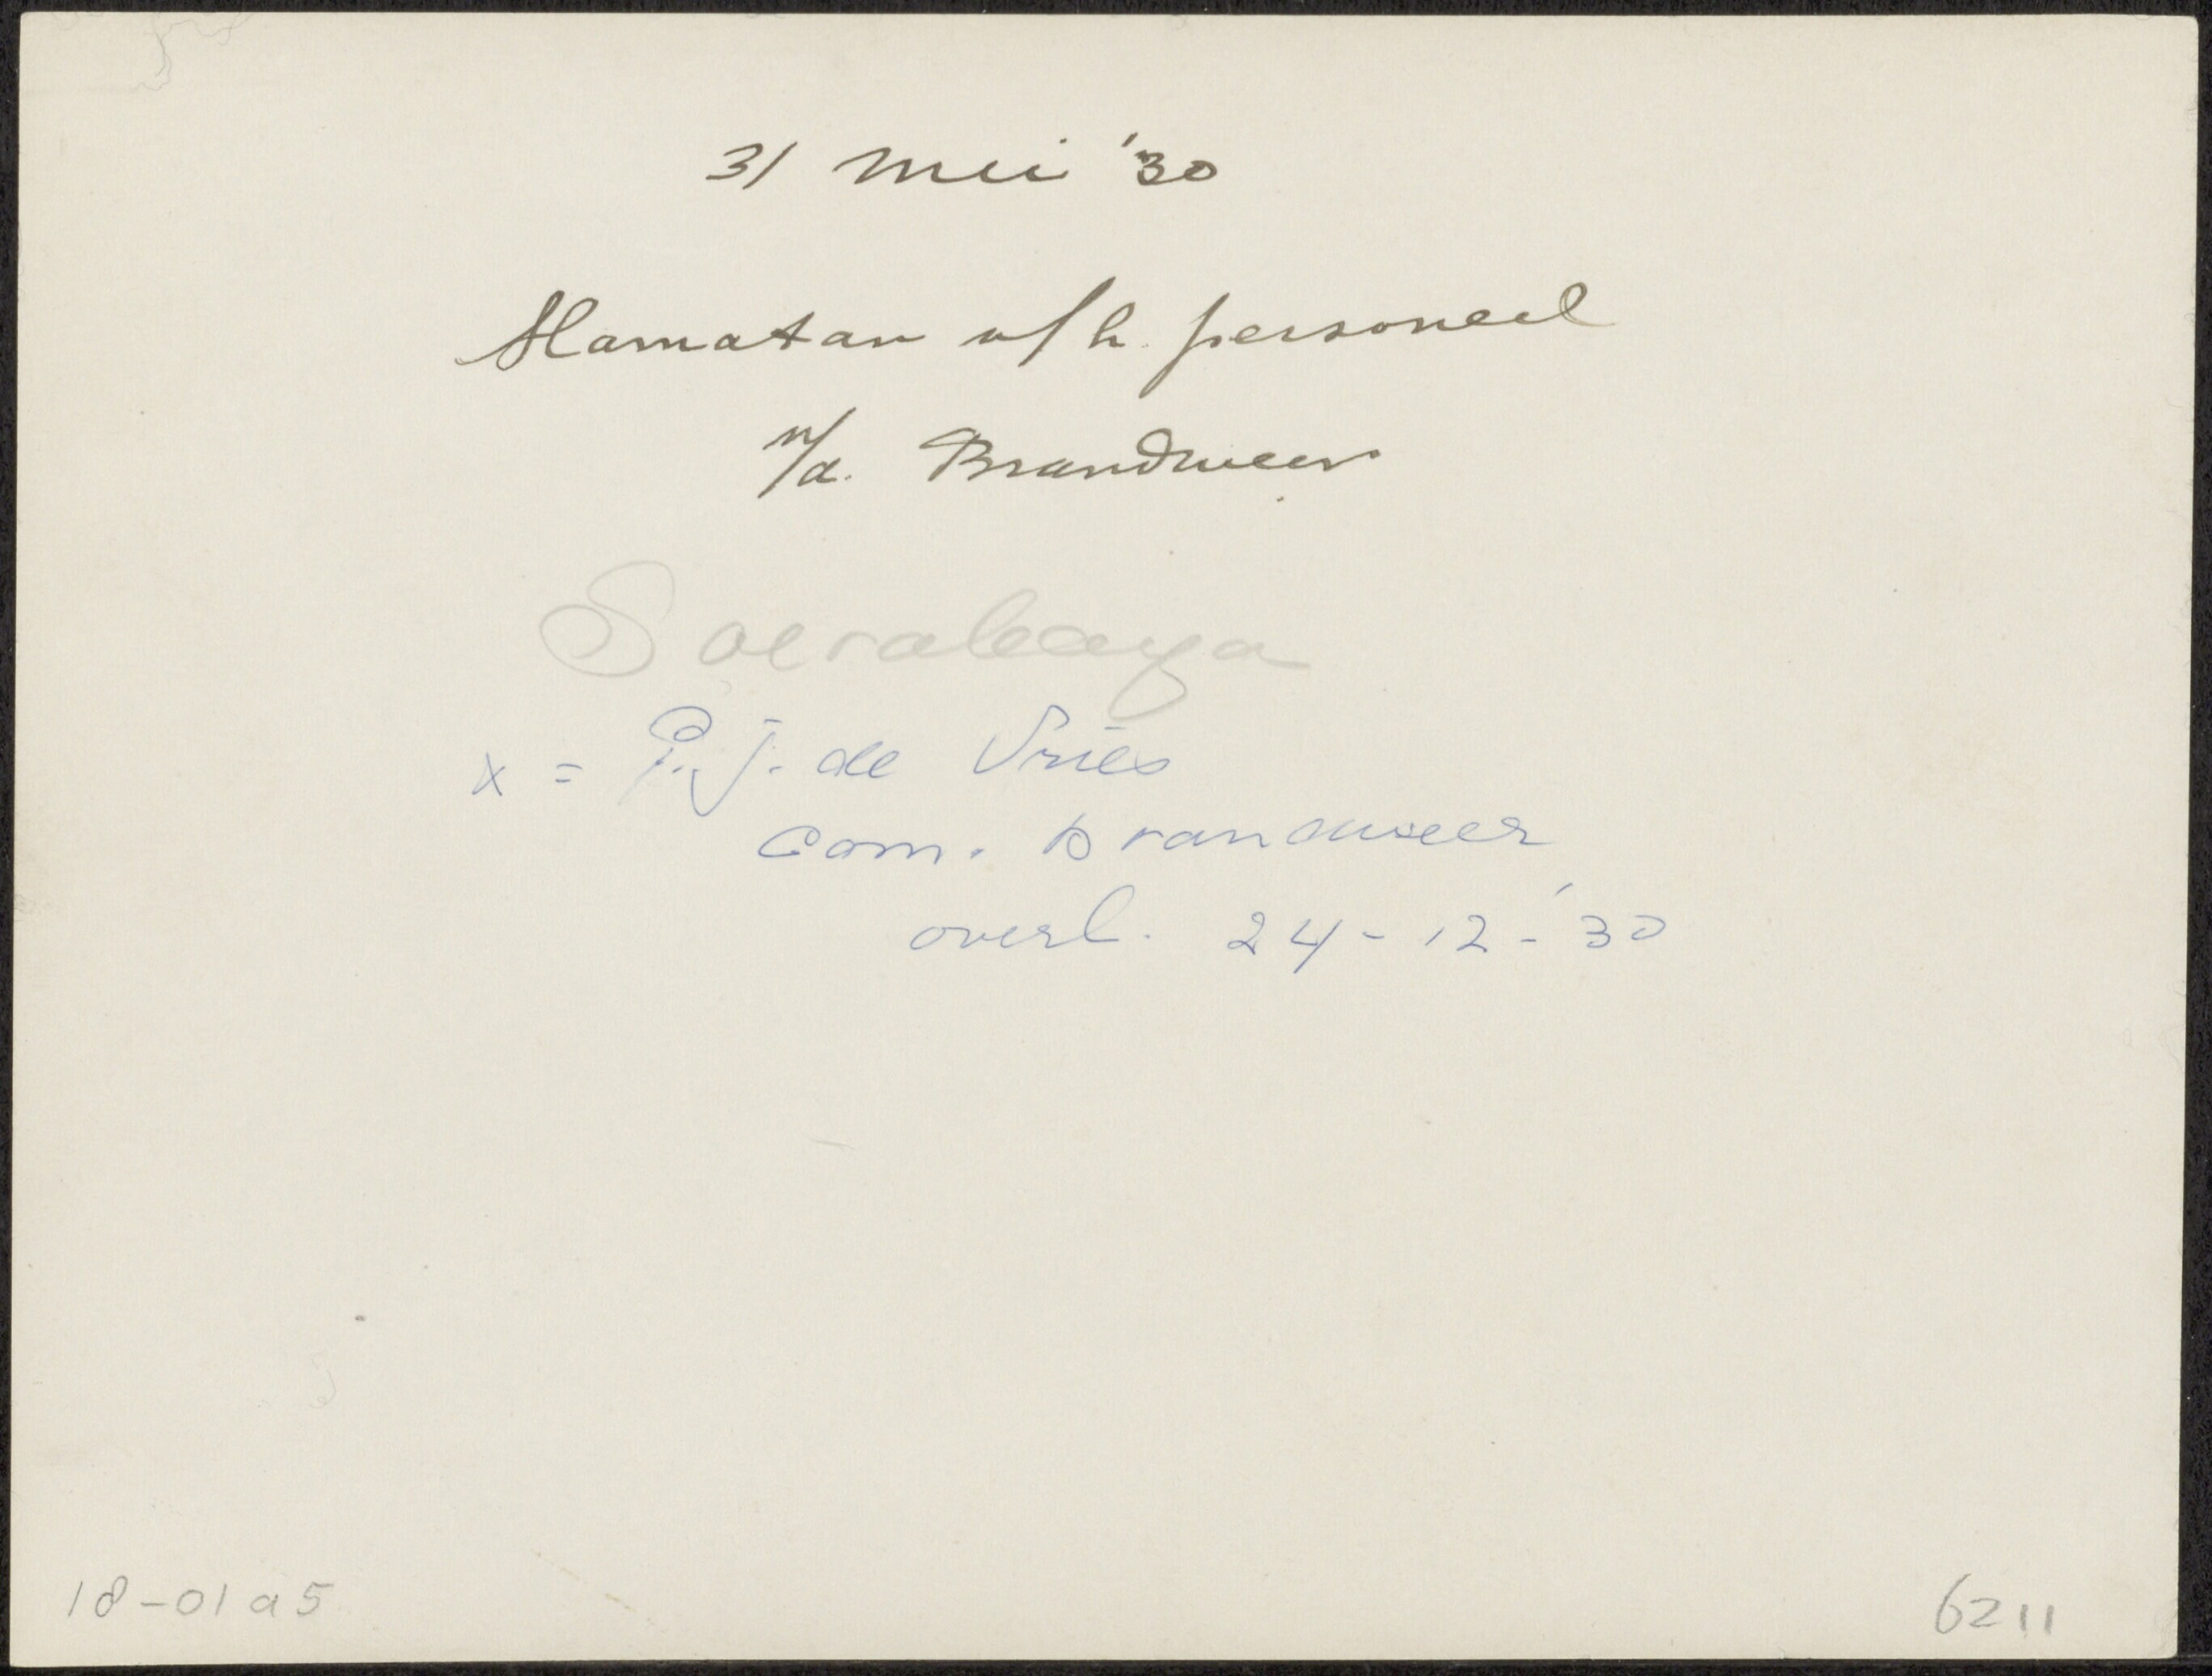 31 Mei '30
Slamatan v/h. personeel
v/d. Brandweer
Soerabaya
x = P.J. de Vries
Com. Brandweer
overl. 24-12-'30
18-01a5
6211